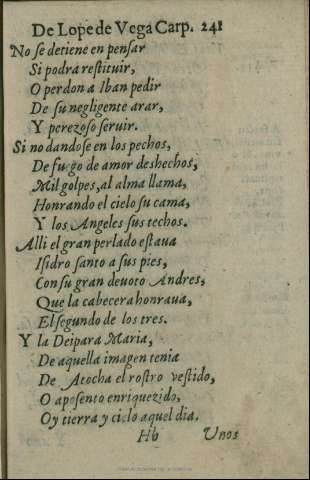 De Lope de Vega Carp. 241
No se detiene en pensar
Si podra restituir,
O perdon a Iban pedir
De su negligente arar,
Y perezoso seruir.
Si no dandose en los pechos,
De fuego de amor deshechos,
Mil golpes, al alma llama,
Honrando el cielo su cama,
Y los Angeles sus techos.
Alli el gran perlado estaua
Isidro santo a sus pies,
Con su gran deuoto Andres,
Que la cabecera honraua,
El segundo de los tres.
Y la Deipara Maria,
De aquella imagen tenia
De Atocha el rostro vestido,
O aposento enriquezido,
Oy tierra y cielo aquel dia.
Hh Vnos